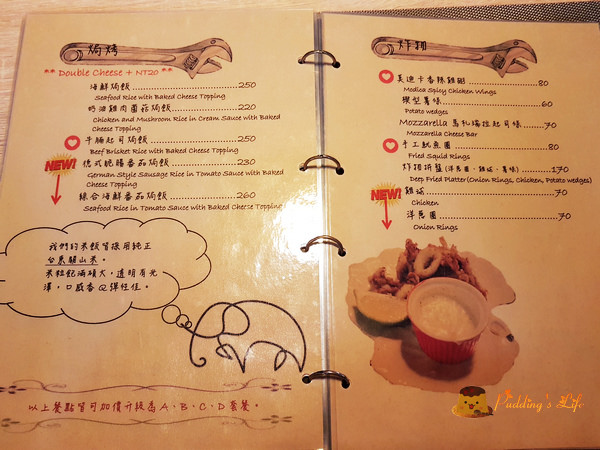 焗烤
** Double Cheese + NT20 **
海鮮焗飯 250
Seafood Rice with Baked Cheese Topping
奶油雞肉菌菇焗飯 220
Chicken and Mushroom Rice in Cream Sauce with Baked
Cheese Topping
牛腩起司焗飯 250
Beef Brisket Rice with Baked Cheese Topping
NEW!
德式脆腸番茄焗飯 230
German Style Sausage Rice in Tomato Sauce with Baked
Cheese Topping
綜合海鮮番茄焗飯 260
Seafood Rice in Tomato Sauce with Baked Cheese Topping
我們的米飯皆採用純正
台東關山米。
米粒飽滿碩大,透明有光
澤,口感香Q彈性佳。
以上餐點皆可加價升級為A、B、C、D套餐。
炸物
美迪卡香辣雞翅 80
Modica Spicy Chicken Wings
模型薯條 60
Potato wedges
Mozzarella 馬札瑞拉起司條 70
Mozzarella Cheese Bar
手工魷魚圈 80
Fried Squid Rings
炸物拼盤(洋蔥圈、雞塊、薯條) 170
Deep Fried Platter(Onion Rings, Chicken, Potato wedges)
NEW!
雞塊 70
Chicken
洋蔥圈 70
Onion Rings
Pudding's Life